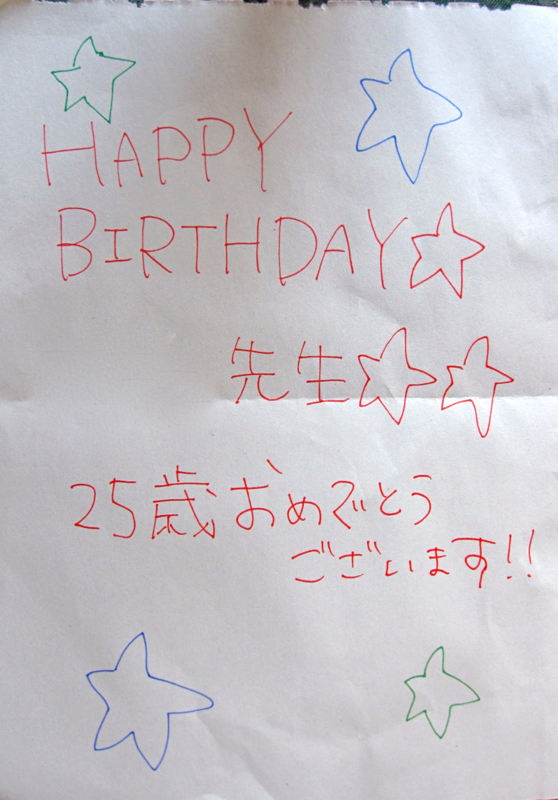 HAPPY
BIRTHDAY☆
先生☆☆
25歳おめでとう
ございます!!